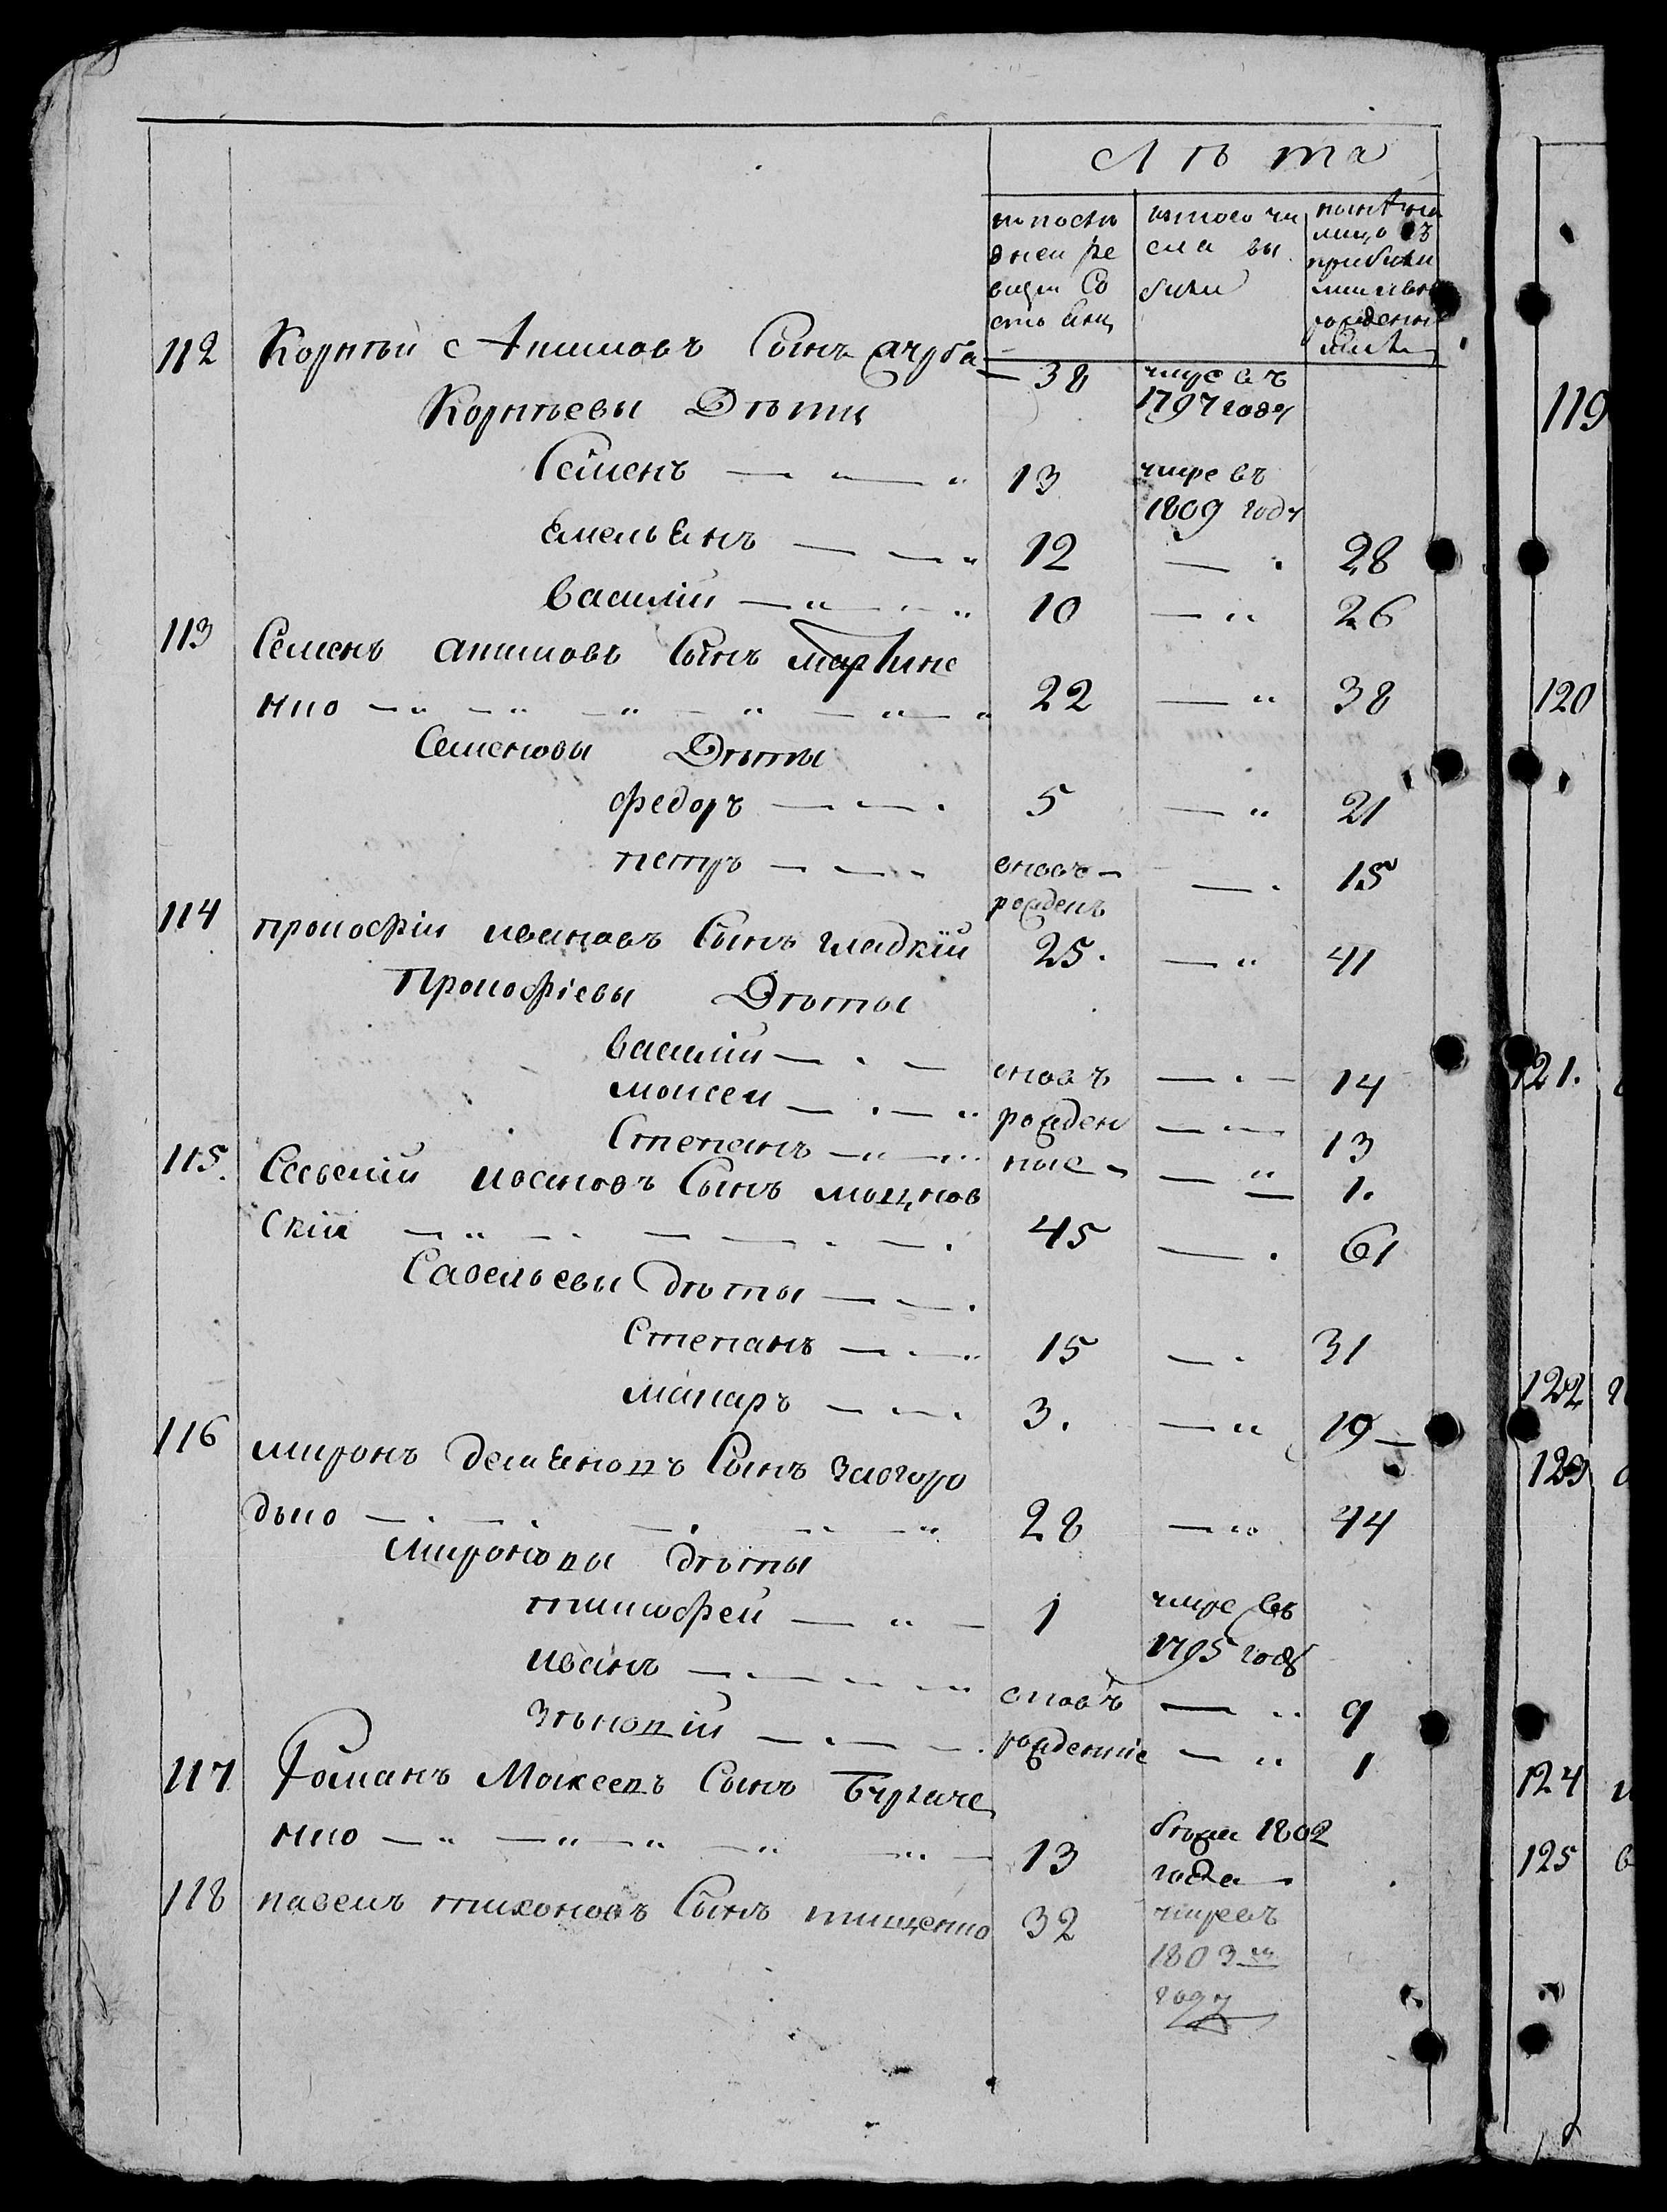 Лѣта
по послѣ
дней ре
визiи со
стояли
изтого чи
сла вы
были
нынѣ на
лицо съ
прибыли
ми и вно
рожденн
ыми
112 Корнѣй Акимовъ Сынъ
38 умре въ
1797 году
Корнѣевы Дѣти
Семенъ 13 умре въ
1809 году
Емельянъ 12 28
Василiй 10 26
113 Семенъ Акимовъ Сынъ Мартине
нко 22 38
Семеновы Дѣти
Федоръ 5 21
петръ вновь 15
рожденъ
114 прокофiй ивановъ Сынъ гладкiй 25. 41
Прокофiевы Дѣти
Василiй вновь 14
Моисей рожден 13
Степанъ ные 1.
115. Савелiй ивановъ Сынъ
скiй 45 61
Савельевы дѣти
Степанъ 15 31
Макаръ 3. 19
116 миронъ демяновъ Сынъ Загоро
дько 28 44
Мироновы дѣти
тимофей 1 умре въ
1795 году
иванъ вновь 9
Зѣновiй рожденнiе 1
117 Романъ Мокеевъ Сынъ
нко 13 бѣжа 1802
года
118 павелъ тихоновъ Сынъ тищенко 32 умре въ
1803м
году
119
120
121.
122
123
124
125